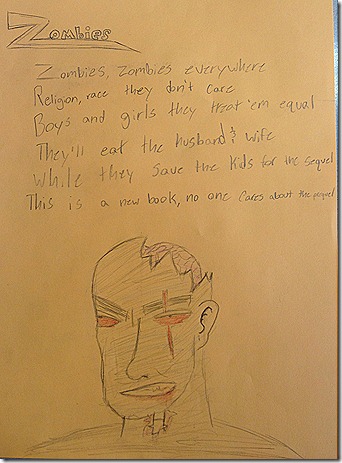 Zombies
Zombies, Zombies everywhere
Religion, race they don't care
Boys and girls they treat 'em equal
They'll eat the husband & wife
While they save the kids for the sequel
This is a new book, no one cares about the prequel